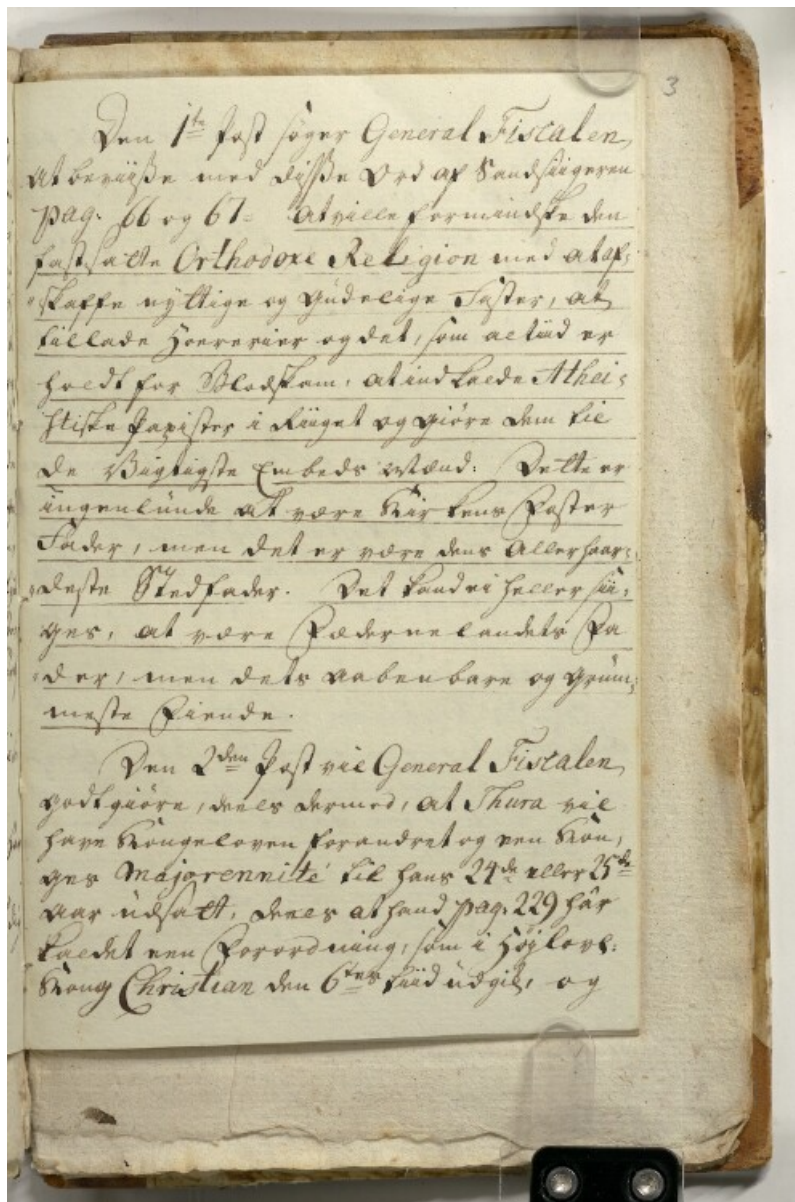 3
Den 1te Post søger General Fiscalen,
at beviiße med diße Ord af Sandsiigeren
pag. 66 og 67= at ville formindske den
fastsatte Orthodoxe Religion med at af-
skaffe nyttige og Gudelige Fester, at
tillade Hoererier og det, som altiid er
holdt for Blodskam: at indkalde Athei-
stiske Papister i Riiget og giøre dem til
de Vigtigste Embeds Mænd: Dette er
ingenlunde at være Kirkens Foster
Fader, men det er være dens Allerhaar-
deste Stedfader. Det kand ei heller sii-
ges, at være Fædernelandets Fa
der, men dets aabenbare og grum-
meste Fiende.
Den 2den Post vil General Fiscalen,
godtgiøre, deels dermed, at Thura vil
have Kongeloven forandret og een Kon-
ges Majorennité til hans 24de eller 25de
Aar udsatt, deels at hand pag. 229 har
kaldet een Forordning, som i Højlovl:
Kong Christian den 6tes Tiid udgik, og